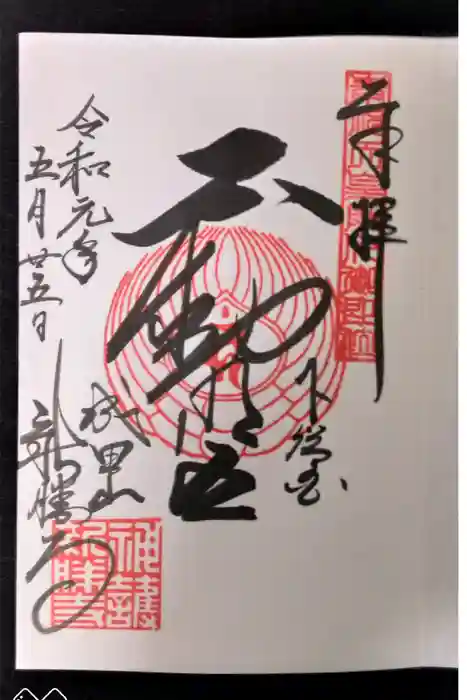 奉拝
下総国
不動明王
令和元年
五月廿五日
成田山
新勝寺
神護
新勝寺